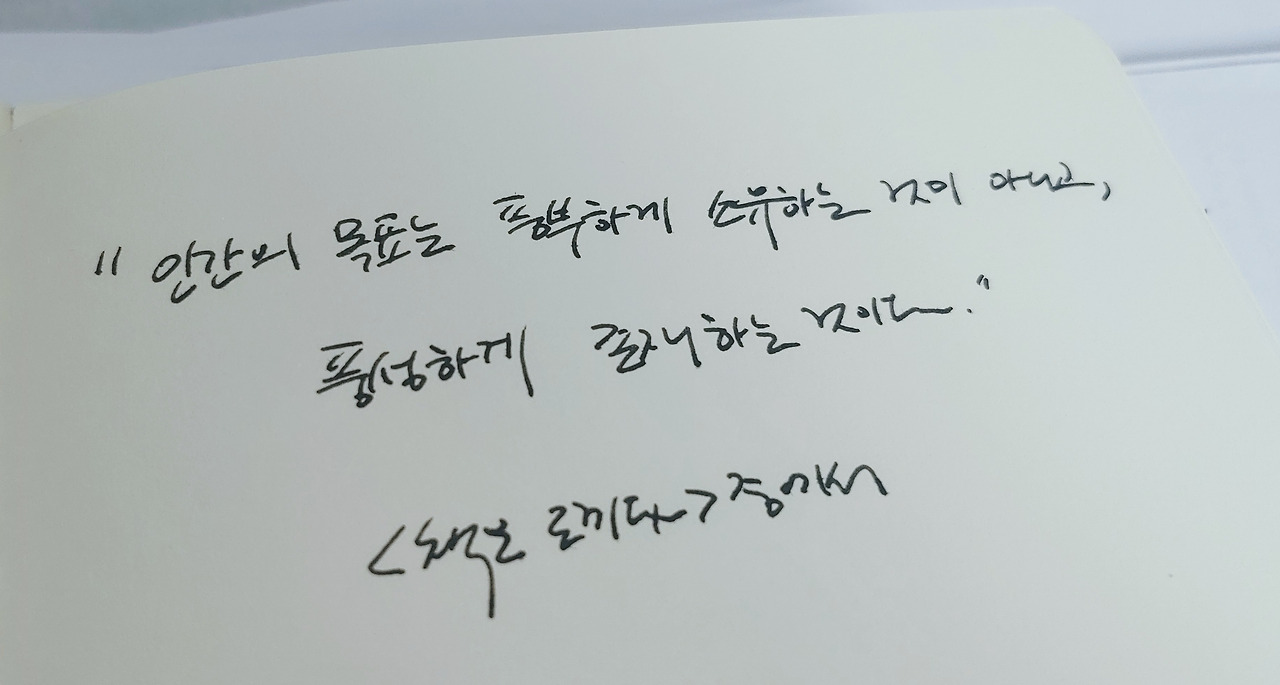 "인간의 목표는 풍부하게 소유하는 것이 아니고,
풍성하게 존재하는 것이다."
<책은 도끼다> 중에서